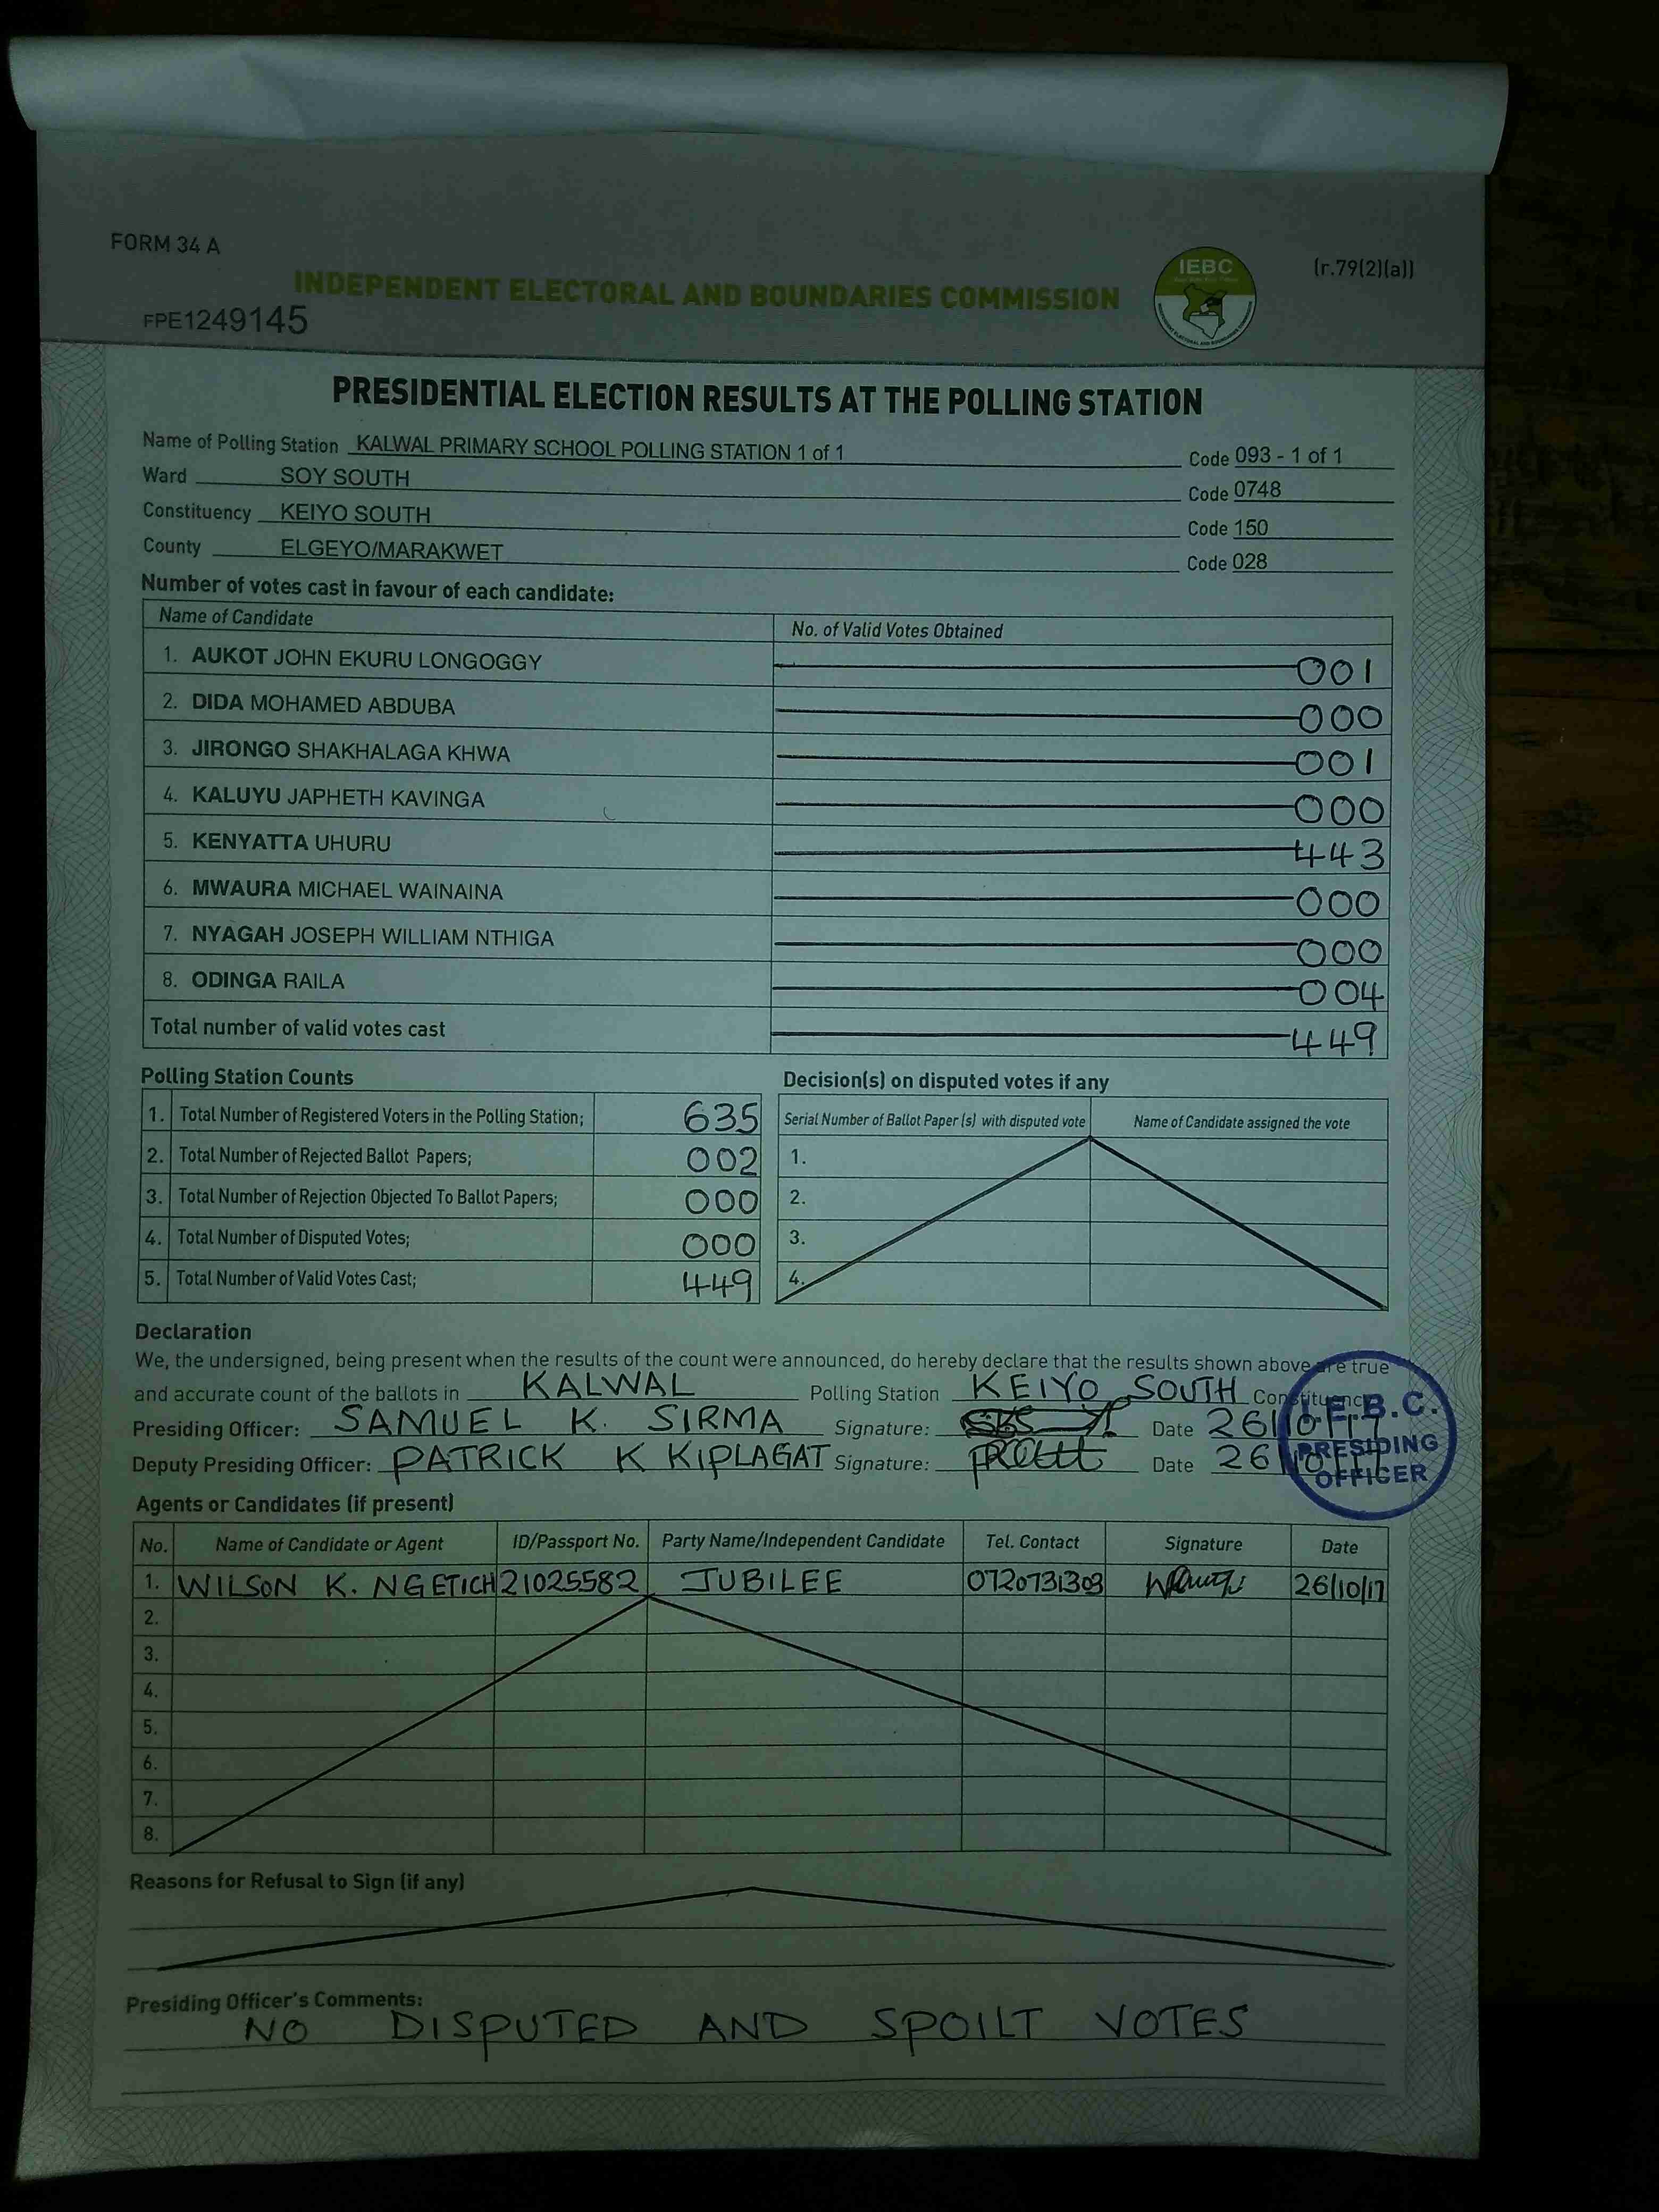 FORM 34 A
(r.79(2)(a))
INDEPENDENT ELECTORAL AND BOUNDARIES COMMISSION
IEBC
FPE1249145
PRESIDENTIAL ELECTION RESULTS AT THE POLLING STATION
Name of Polling Station KALWAL PRIMARY SCHOOL POLLING STATION 1 of 1 Code 093 - 1 of 1
Ward SOY SOUTH Code 0748
Constituency KEIYO SOUTH Code 150
County ELGEYO/MARAKWET Code 028
Number of votes cast in favour of each candidate:
Name of Candidate No. of Valid Votes Obtained
1. AUKOT JOHN EKURU LONGOGGY 001
2. DIDA MOHAMED ABDUBA 000
3. JIRONGO SHAKHALAGA KHWA 001
4. KALUYU JAPHETH KAVINGA 000
5. KENYATTA UHURU 443
6. MWAURA MICHAEL WAINAINA 000
7. NYAGAH JOSEPH WILLIAM NTHIGA 000
8. ODINGA RAILA 004
Total number of valid votes cast 449
Polling Station Counts
1. Total Number of Registered Voters in the Polling Station; 635
2. Total Number of Rejected Ballot Papers; 002
3. Total Number of Rejection Objected To Ballot Papers; 000
4. Total Number of Disputed Votes; 000
5. Total Number of Valid Votes Cast; 449
Decision(s) on disputed votes if any
Serial Number of Ballot Paper (s) with disputed vote Name of Candidate assigned the vote
1.
2.
3.
4.
Declaration
We, the undersigned, being present when the results of the count were announced, do hereby declare that the results shown above are true
and accurate count of the ballots in KALWAL Polling Station KEIYO SOUTH Constituency
Presiding Officer: SAMUEL K. SIRMA Signature: Date 26/10/17
Deputy Presiding Officer: PATRICK K KIPLAGAT Signature: Date 26/10/17
I.E.B.C.
PRESIDING
OFFICER
Agents or Candidates (if present)
No. Name of Candidate or Agent ID/Passport No. Party Name/Independent Candidate Tel. Contact Signature Date
1. WILSON K. NGETICH 21025582 JUBILEE 0720731303 26/10/17
2.
3.
4.
5.
6.
7.
8.
Reasons for Refusal to Sign (if any)
Presiding Officer's Comments:
NO DISPUTED AND SPOILT VOTES